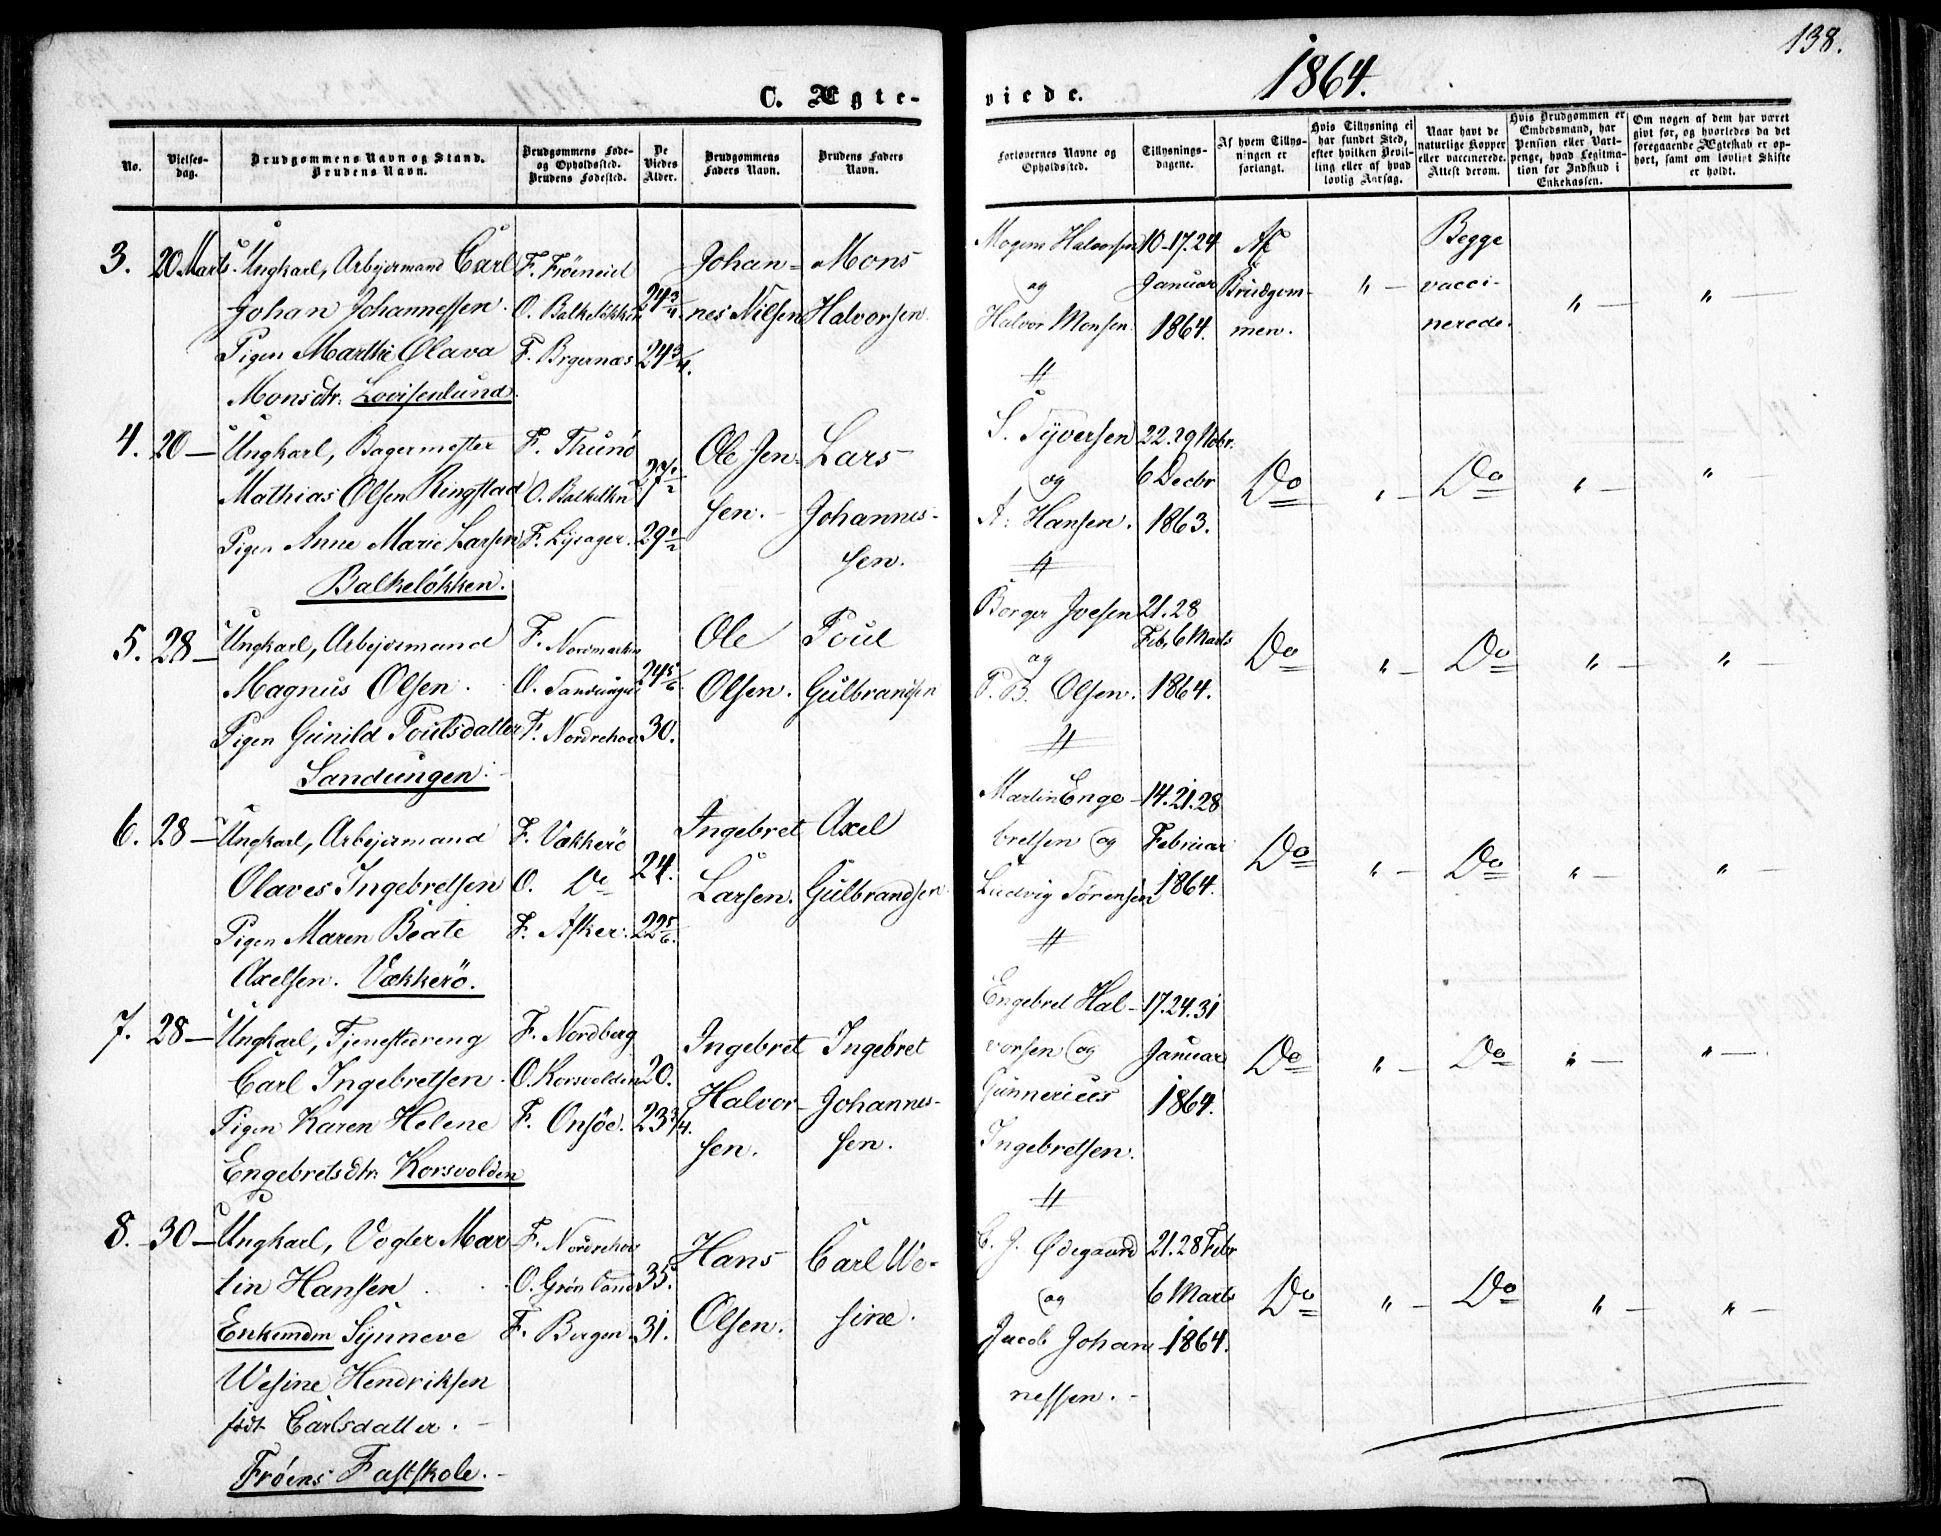 138.
1864.
C. Ægte-
viede.
No.
Vielses-
dag.
Brudgommens Navn og Stand.
Brudens Navn.
Brudgommens Føde-
og Opholdssted.
Brudens Fødested.
De
Viedes
Alder.
Brudgommens
Faders Navn.
Brudens Faders
Navn.
Forlovernes Navne og
Opholdssted.
Tillysnings-
dagene.
Af hvem Tillys-
ningen er
forlangt.
Hvis Tillysning ei
har fundet Sted,
efter hvilken Bevil-
ling eller af hvad
lovlig Aarsag.
Naar havt de
naturlige Kopper
eller vaccinerede.
Attest derom.
Hvis Brudgommen er
Embedsmand, har
Pension eller Vart-
penge, hvad Legitima-
tion for Indskud i
Enkekassen.
Om nogen af dem har været
givt før, og hvorledes da det
foregaaende Ægteskab er op-
hørt, samt om lovligt Skifte
er holdt.
3. 20 Marts. Ungkarl, Arbeidsmand Carl
Johan Johannessen.
Pigen Marthe Olava
Monsdtr. Lovisenlund.
F. Fröeneid
O. Balkeløkken
F. Brgernæs
24 3/4.
24 3/4.
Johan-
nes Nilsen
Mons
Halvorsen.
Mogens Halvorsen
og
Halvor Monsen.
10-17.24
Januar
1864.
Af
Brudgom-
men.
" —
Begge
vacci-
nerede.
" —
" —
4. 20 — Ungkarl, Bagermester
Mathias Olsen Ringstad
Pigen Anne Marie Larsen
Balkeløkken.
F. Thunö
O. Balkelkn
F. Lijsager.
27 1/2
29 1/2
Ole Jen-
sen.
Lars
Johannes-
sen.
S. Syversen
og
A. Hansen.
22.29 Nobr.
6 Decbr
1863.
Do
" —
Do
" —
"
5. 28 — Ungkarl, Arbeidsmand
Magnus Olsen.
Pigen Gunild Poulsdatter
Sandungen.
F. Nordmarken
O. Sandungen
F. Nordrehov
24 5/6.
30.
Ole
Olsen.
Poul
Gulbrandsen
Borger Ivesen
og
P. B. Olsen.
21.28
Feb. 6 Marts
1864.
Do
" —
Do
" —
" —
6. 28 — Ungkarl, Arbeidsmand
Olaves Ingebretsen
Pigen Maren Beate
Axelsen. Vækkerö.
F. Vækkerö
O. Do
F. Asker.
24.
22 5/6.
Ingebret
Larsen.
Axel
Gulbrandsen
Martin Enge-
bretsen og
Ludvig Sörensen
14.21.28
Februar
1864.
Do
" —
Do
" —
" —
7. 28 — Ungkarl, Tjenestedreng
Carl Ingebretsen.
Pigen Karen Helene
Engebretsdtr. Korsvolden
F. Nordberg
O. Korsvolden
F. Onsöe.
20.
23 3/4.
Ingebret
Halvor-
sen.
Ingebret
Johannes-
sen.
Engebret Hal-
vorsen og
Gunnerius
Ingebretsen.
17.24.31
Januar
1864.
Do
" —
Do
" —
" —
8. 30 — Ungkarl, Vogter Mar
tin Hansen.
Enkemdm Synneve
Wesine Hendriksen
født Carlsdatter.
Frøens Fastskole.
F. Nordrehov
O. Grönland
F. Bergen
35.
31.
Hans
Olsen.
Carl We-
sine.
C. J. Ødegaard
og
Jacob Johan-
nessen.
21.28 Febr
6 Marts
1864.
Do
" —
Do
" —
" —